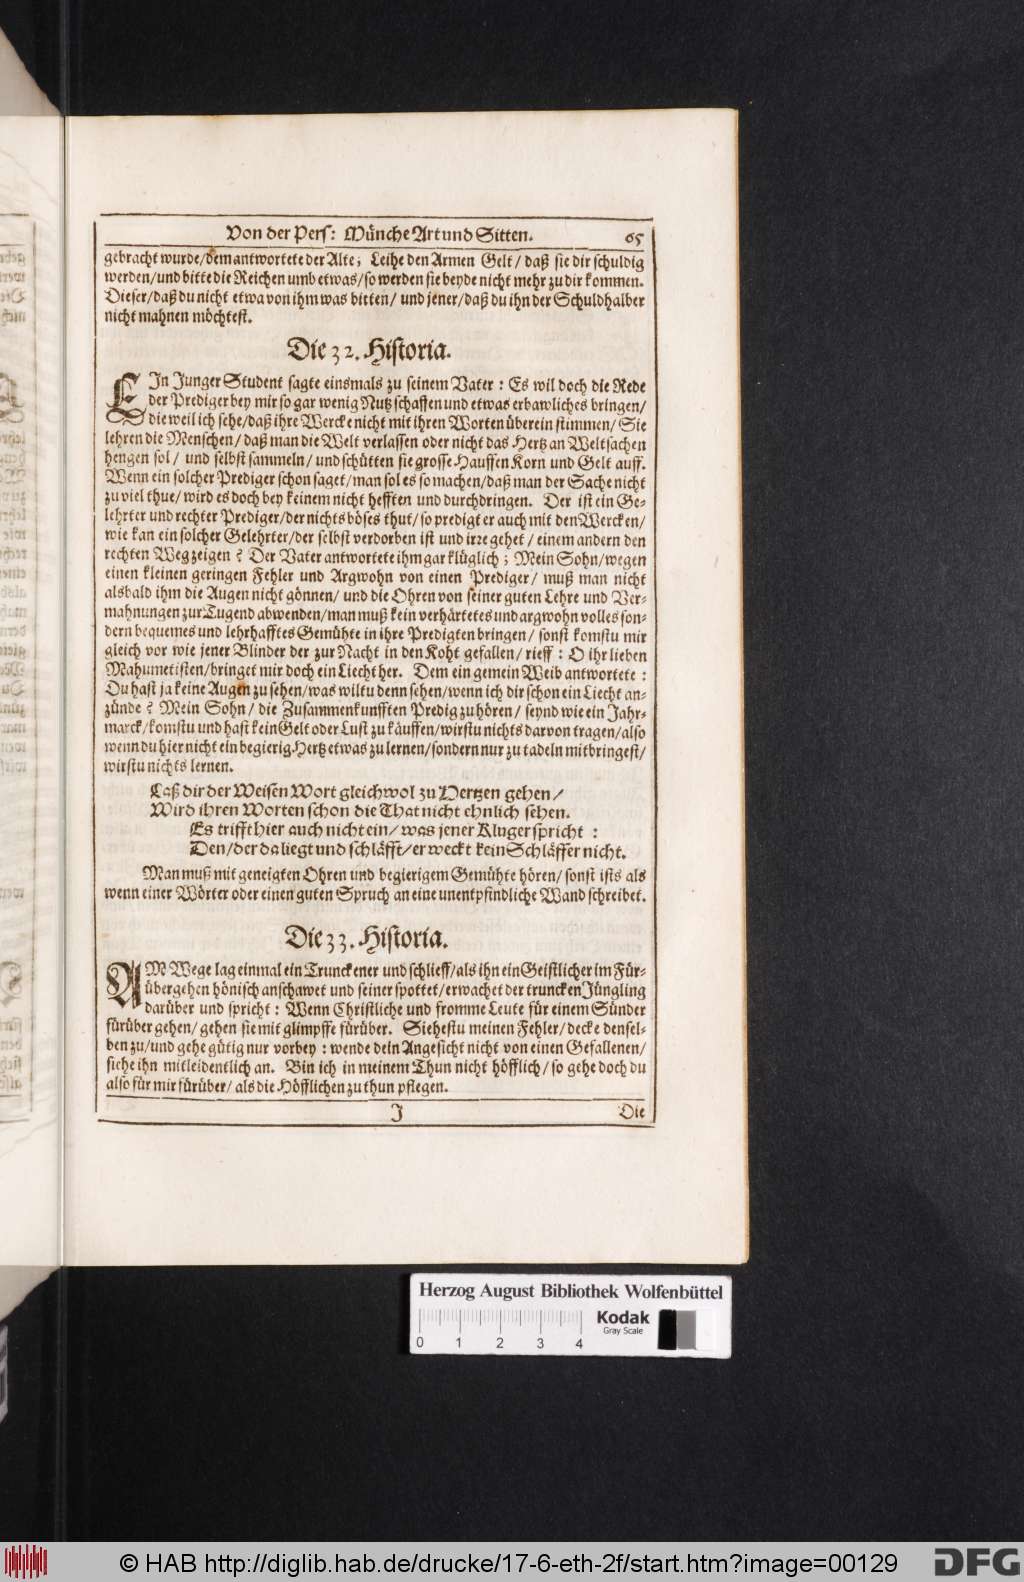 Von der Pers: Münche Art und Sitten. 65
gebracht wurde/dem antwortete der Alte; Leihe den Armen Gelt/ daß sie dir schuldig
werden/und bitte die Reichen umb etwas/so werden sie beyde nicht mehr zu dir kommen.
Dieser/daß du nicht etwa von ihm was bitten/ und jener/daß du ihn der Schuld halber
nicht mahnen möchtest.
Die 32. Historia.
EIn Junger Student sagte einsmals zu seinem Vater: Es wil doch die Rede
der Prediger bey mir so gar wenig Nutz schaffen und etwas erbawliches bringen/
die weil ich sehe/daß ihre Wercke nicht mit ihren Worten überein stimmen/ Sie
lehren die Menschen/ daß man die Welt verlassen oder nicht das Hertz an Weltsachen
hengen sol/ und selbst sammeln/ und schütten sie grosse Hauffen Korn und Gelt auff.
Wenn ein solcher Prediger schon saget/man sol es so machen/daß man der Sache nicht
zu viel thue/ wird es doch bey keinem nicht hefften und durchdringen. Der ist ein Ge-
lehrter und rechter Prediger/der nichts böses thut/ so predigt er auch mit den Wercken/
wie kan ein solcher Gelehrter/der selbst verdorben ist und irre gehet/ einem andern den
rechten Weg zeigen? Der Vater antwortete ihm gar klüglich; Mein Sohn/wegen
einen kleinen geringen Fehler und Argwohn von einen Prediger/ muß man nicht
alsbald ihm die Augen nicht gönnen/ und die Ohren von seiner guten Lehre und Ver-
mahnungen zur Tugend abwenden/man muß kein verhärtetes und argwohn volles son-
dern bequemes und lehrhafftes Gemühte in ihre Predigten bringen/ sonst komstu mir
gleich vor wie jener Blinder der zur Nacht in den Koht gefallen/ rieff: O ihr lieben
Mahumetisten/bringet mir doch ein Liecht her. Dem ein gemein Weib antwortete:
Du hast ja keine Augen zu sehen/was wiltu denn sehen/wenn ich dir schon ein Liecht an-
zünde? Mein Sohn/ die Zusammenkunfften Predig zu hören/ seynd wie ein Jahr-
marck/komstu und hast kein Gelt oder Lust zu käuffen/wirstu nichts darvon tragen/also
wenn du hier nicht ein begierig Hertz etwas zu lernen/sondern nur zu tadeln mitbringest/
wirstu nichts lernen.
Laß dir der Weisen Wort gleichwol zu Hertzen gehen/
Wird ihren Worten schon die That nicht ehnlich sehen.
Es trifft hier auch nicht ein/ was jener Kluger spricht:
Den/der da liegt und schläfft/er weckt kein Schläffer nicht.
Man muß mit geneigten Ohren und begierigem Gemühte hören/ sonst ists als
wenn einer Wörter oder einen guten Spruch an eine unentpfindliche Wand schreibet.
Die 33. Historia.
AM Wege lag einmal ein Trunckener und schlieff/als ihn ein Geistlicher im Für-
übergehen hönisch anschawet und seiner spottet/erwachet der truncken Jüngling
darüber und spricht: Wenn Christliche und fromme Leute für einem Sünder
fürüber gehen/ gehen sie mit glimpffe fürüber. Siehestu meinen Fehler/decke densel-
ben zu/und gehe gütig nur vorbey: wende dein Angesicht nicht von einen Gefallenen/
siehe ihn mitleidentlich an. Bin ich in meinem Thun nicht höfflich/ so gehe doch du
also für mir fürüber/ als die Höfflichen zu thun pflegen.
J Die
Herzog August Bibliothek Wolfenbüttel
Kodak
Gray Scale
0 1 2 3 4
© HAB http://diglib.hab.de/drucke/17-6-eth-2f/start.htm?image=00129
DFG